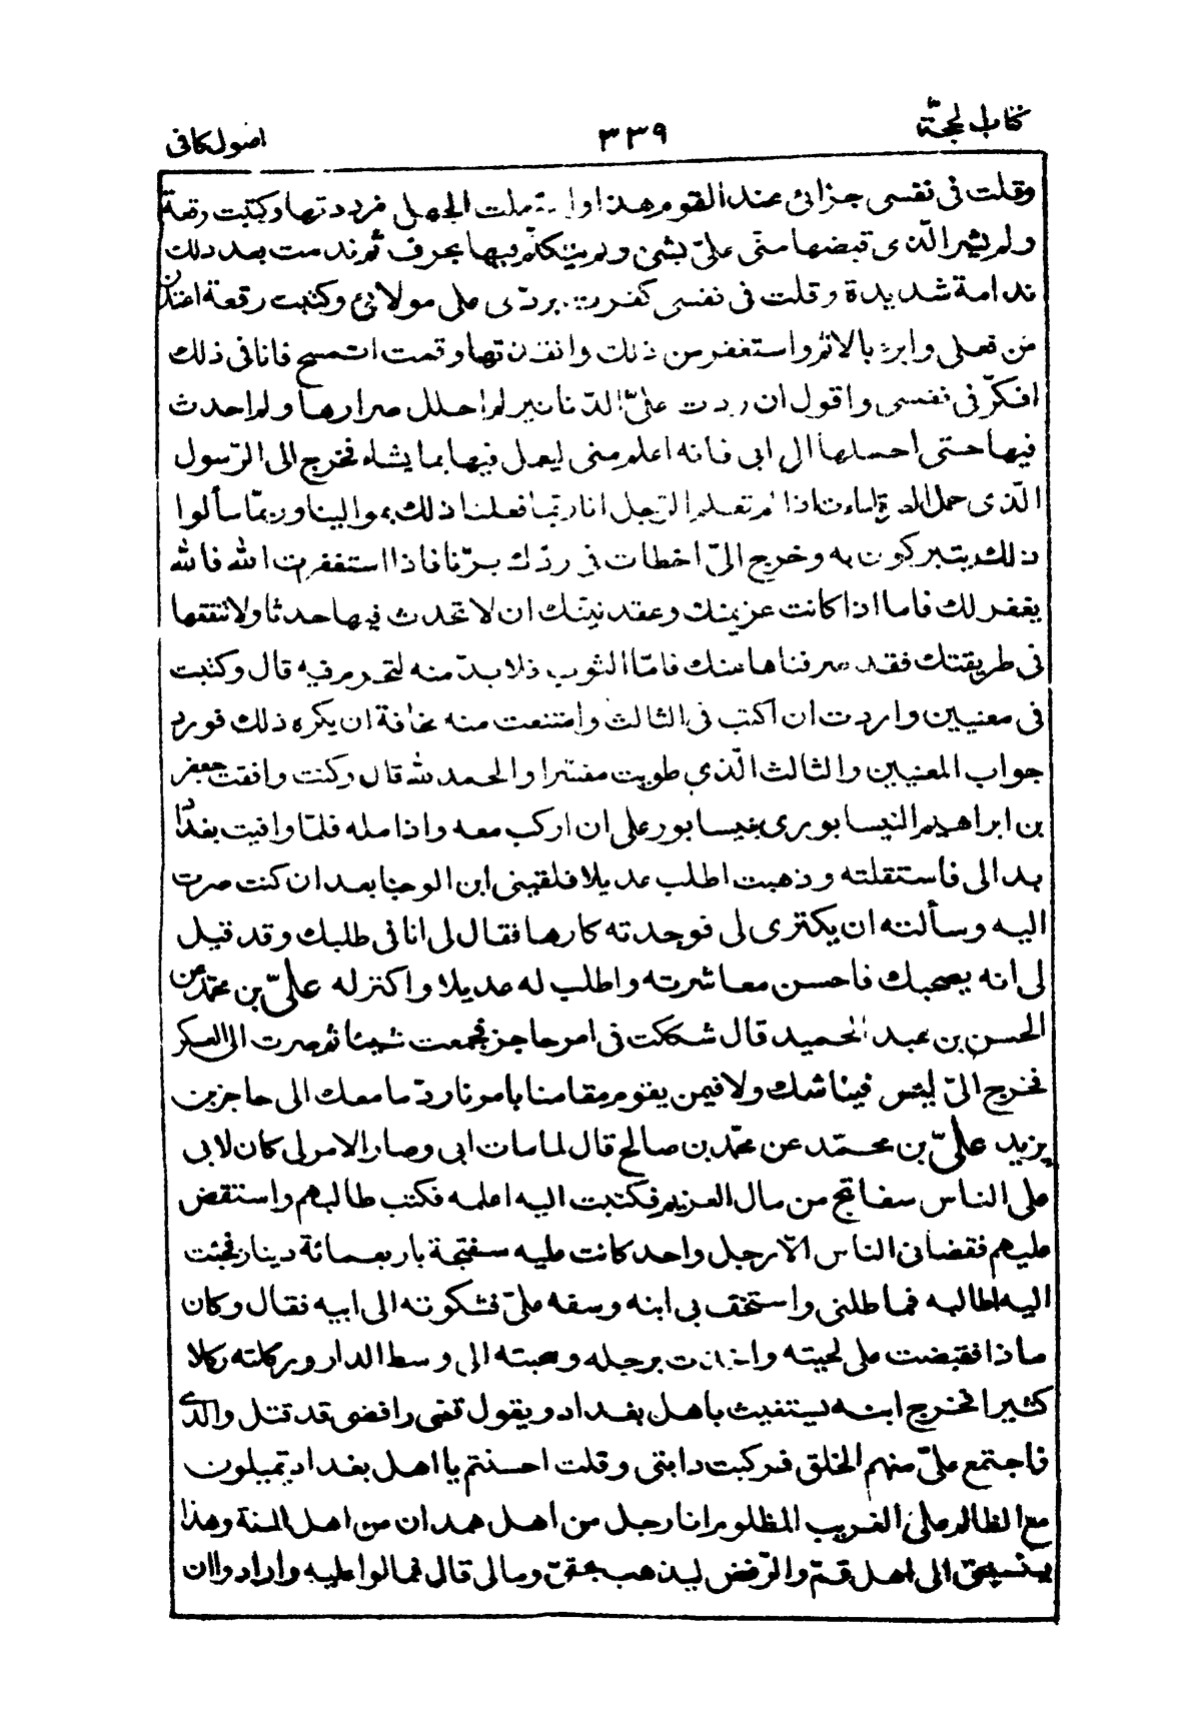 كتاب الحجّة ٣٣٩ اصول كافى
وقلت فى نفسى جزائى عند القوم هذا واستعملت الجهل فرددتها وكتبت رقعة
ولم يشر الّذى قبضها منّى علىّ بشئ ولم يتكلّم فيها بحرف ثم ندمت بعد ذلك
ندامة شديدة وقلت فى نفسى كفرت بردّى على مولائى وكتبت رقعة اعتذر
من فعلى وابوء بالاثم واستغفر من ذلك وانفذتها وقمت اتمسح فانا فى ذلك
افكّر فى نفسى واقول ان ردت علىّ الدّنانير لم احلل صرارها ولم احدث
فيها حتى احملها الى ابى فانه اعلم منى ليعمل فيها بما يشاء فخرج الى الرّسول
الّذى حمل الصرة اسات اذ لم تعلم الرّجل انا ربّما فعلنا ذلك بموالينا وربمّا سألوا
ذلك يتبركون به وخرج الىّ اخطات فى ردّك برّنا فاذا استغفرت الله فالله
يغفر لك فاما اذا كانت عزيمتك وعقد نيتك ان لا تحدث فيها حدثا ولا تنفقها
فى طريقتك فقد صرفناها عنك فامّا الثوب فلا بدّ منه لتحرم فيه قال وكتبت
فى معنيين واردت ان اكتب فى الثالث وامتنعت منه مخافة ان يكره ذلك فورد
جواب المعنيين والثالث الّذى طويت مفسّرا والحمد لله قال وكنت وافقت جعفر
بن ابراهيم النيسابورى بنيسابور على ان اركب معه وازامله فلمّا وافيت بغداد
بدا لى فاستقلته وذهبت اطلب عديلا فلقينى ابن الوجنا بعد ان كنت صرت
اليه وسألته ان يكترى لى فوجدته كارها فقال لى انا فى طلبك وقد قيل
لى انه يصحبك فاحسن معاشرته واطلب له عديلا واكتر له علىّ بن محمّد عن
الحسن بن عبد الحميد قال شككت فى امر حاجز فجمعت شيئا ثم صرت الى العسكر
فخرج الىّ ليس فينا شك ولا فيمن يقوم مقامنا بامرنا ردّ ما معك الى حاجز بن
يزيد علىّ بن محمّد عن محمّد بن صالح قال لما مات ابى وصار الامر لى كان لابى
على الناس سفاتج من مال الغريم فكتبت اليه اعلمه فكتب طالبهم واستقض
عليهم فقضانى الناس الّا رجل واحد كانت عليه سفتجة باربعمائة دينار فجئت
اليه اطالبه فماطلنى واستخف بى ابنه وسفه علىّ فشكوته الى ابيه فقال وكان
ماذا فقبضت على لحيته واخذت برجله وسحبته الى وسط الدار وركلته ركلا
كثيرا فخرج ابنه يستغيث باهل بغداد ويقول قمى رافضى قد قتل والدى
فاجتمع علىّ منهم الخلق فركبت دابتى وقلت احسنتم يا اهل بغداد تميلون
مع الظالم على الغريب المظلوم انا رجل من اهل همدان من اهل السنة وهذا
ينسبنى الى اهل قمّ والرّفض ليذهب بحقىّ ومالى قال فمالوا عليه وارادوا ان